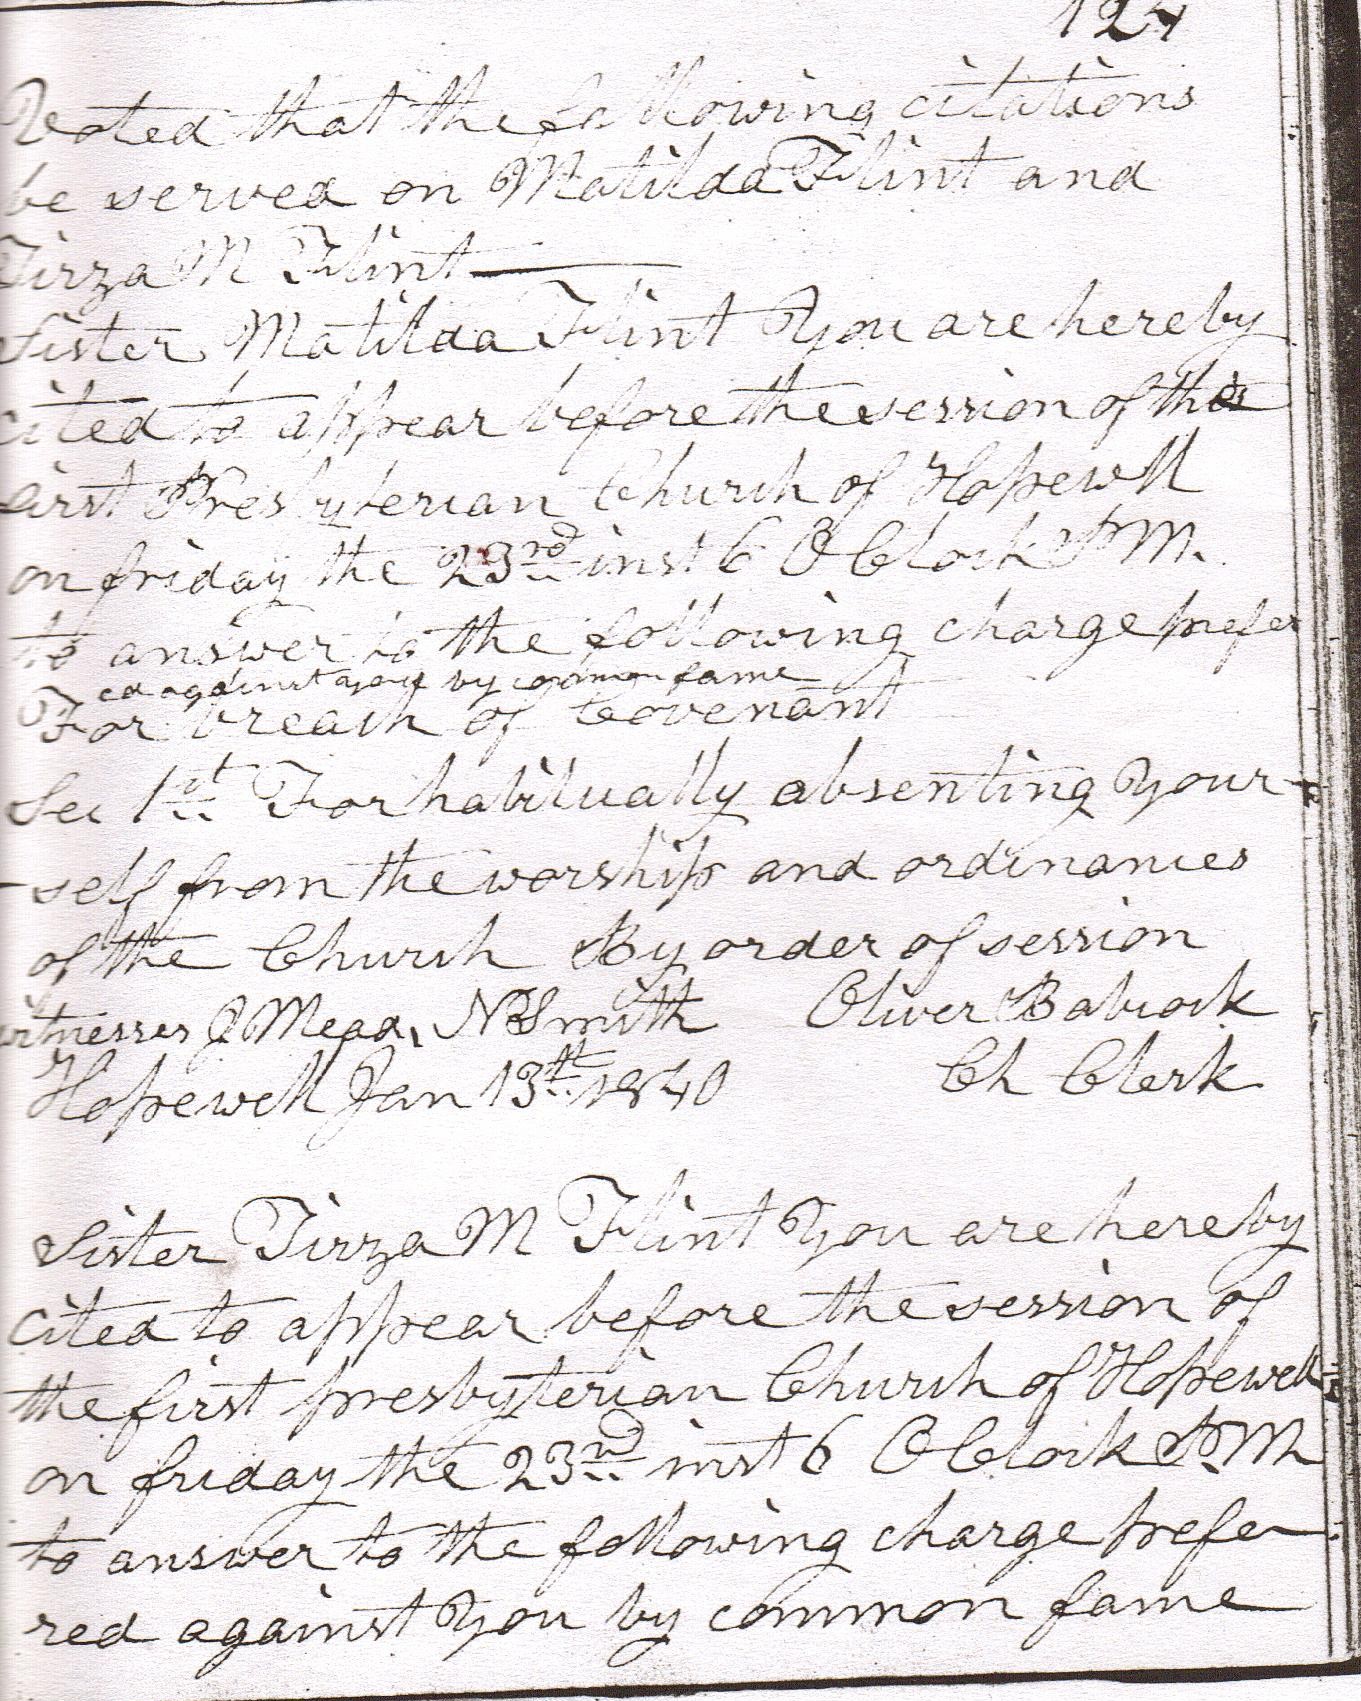 124
Voted that the following citations
be served on Matilda Flint and
Tirza M Flint
Sister Matilda Flint You are hereby
cited to appear before the session of the
first Presbyterian Church of Hopewell
on friday the 23rd inst 6 O Clock P M.
to answer to the following charge prefer
ed against you by common fame
For breach of Covenant
Sec 1st For habitually absenting Your-
-self from the worship and ordinances
of the Church By order of session
witnesses J Mead, N B Smith Oliver Babcock
Hopewell Jan 13th 1840 Ch Clerk
Sister Tirza M Flint You are hereby
cited to appear before the session of
the first presbyterian Church of Hopewell
on friday the 23rd inst 6 O Clock P. M
to answer to the following charge prefer
red against You by common fame